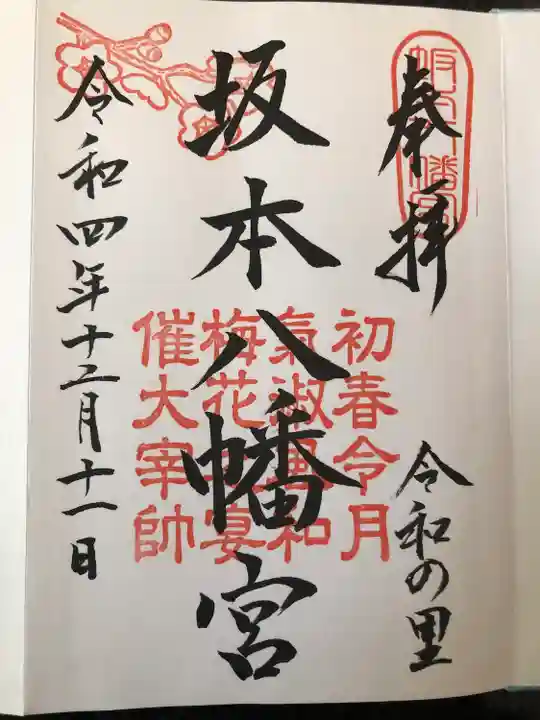 奉拝
坂本八幡宮
令和の里
坂本八幡宮
初春令月
氣淑風和
梅花の宴
催大宰帥
令和四年十二月十一日